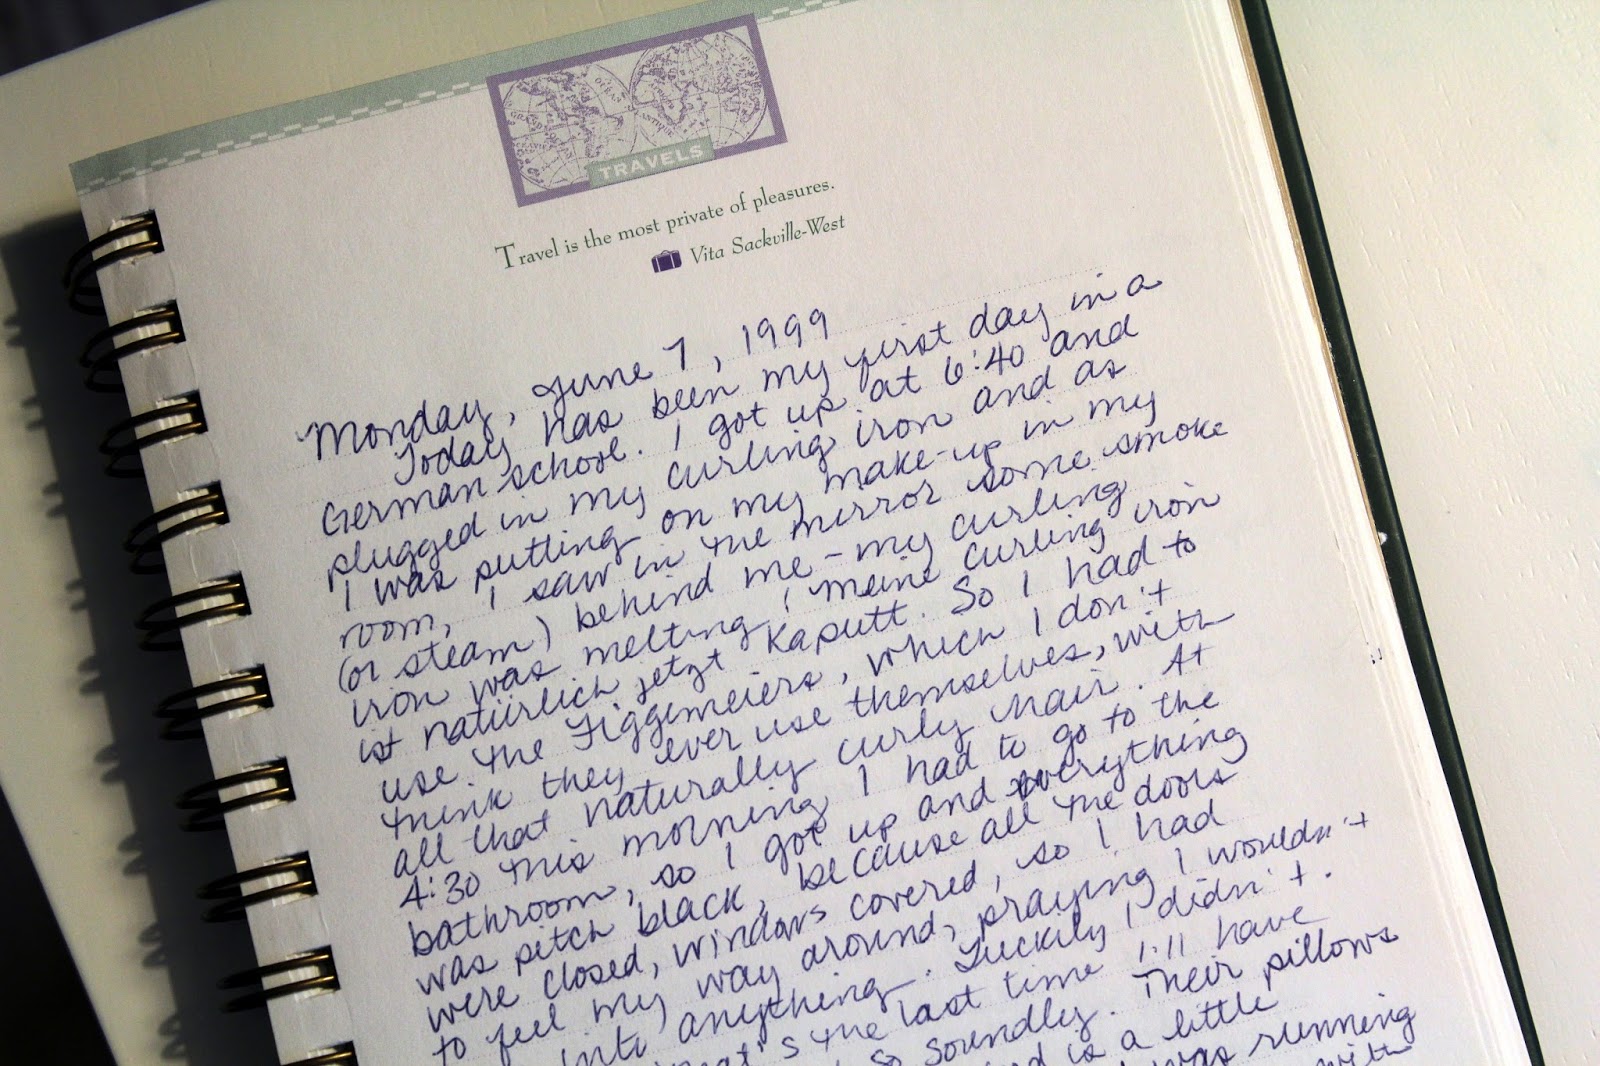 TRAVELS
Travel is the most private of pleasures.
Vita Sackville-West
Monday, June 7, 1999
Today has been my first day in a
German school. I got up at 6:40 and
plugged in my curling iron and as
I was putting on my make-up in my
room, I saw in the mirror some smoke
(or steam) behind me - my curling
iron was melting, meine curling iron
ist natürlich jetzt kaputt. So I had to
use the Figgemeiers, which I don't
think they ever use themselves, with
all that naturally curly hair. At
4:30 this morning I had to go to the
bathroom, so I got up and everything
was pitch black, because all the doors
were closed, windows covered, so I had
to feel my way around, praying I wouldn't
into anything. Luckily I didn't.
the last time I'll have
so soundly. Their pillows
is a little
was running
with